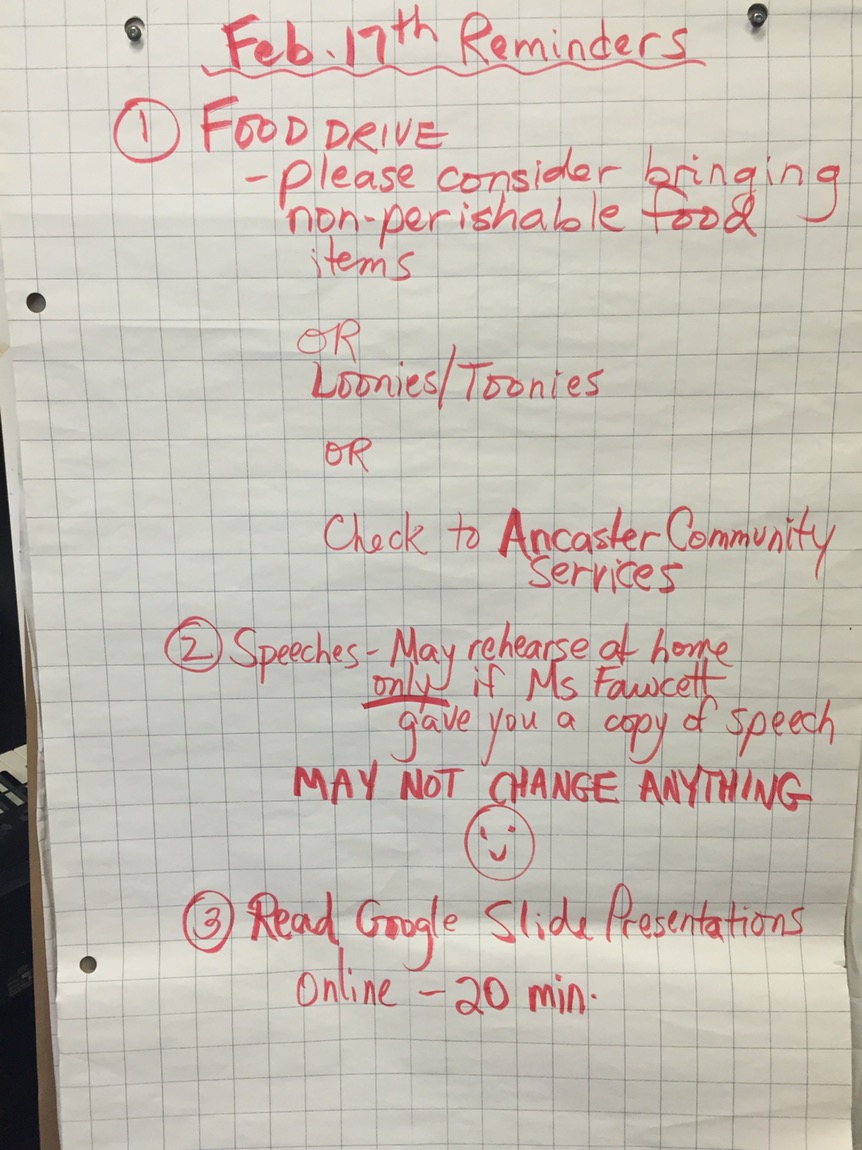 Feb. 17th Reminders
① FOOD DRIVE
- please consider bringing
non-perishable food
items
OR
Loonies/Toonies
OR
Check to Ancaster Community
Services
② Speeches - May rehearse at home
only if Ms Fawcett
gave you a copy of speech
MAY NOT CHANGE ANYTHING
③ Read Google Slide Presentations
Online - 20 min.